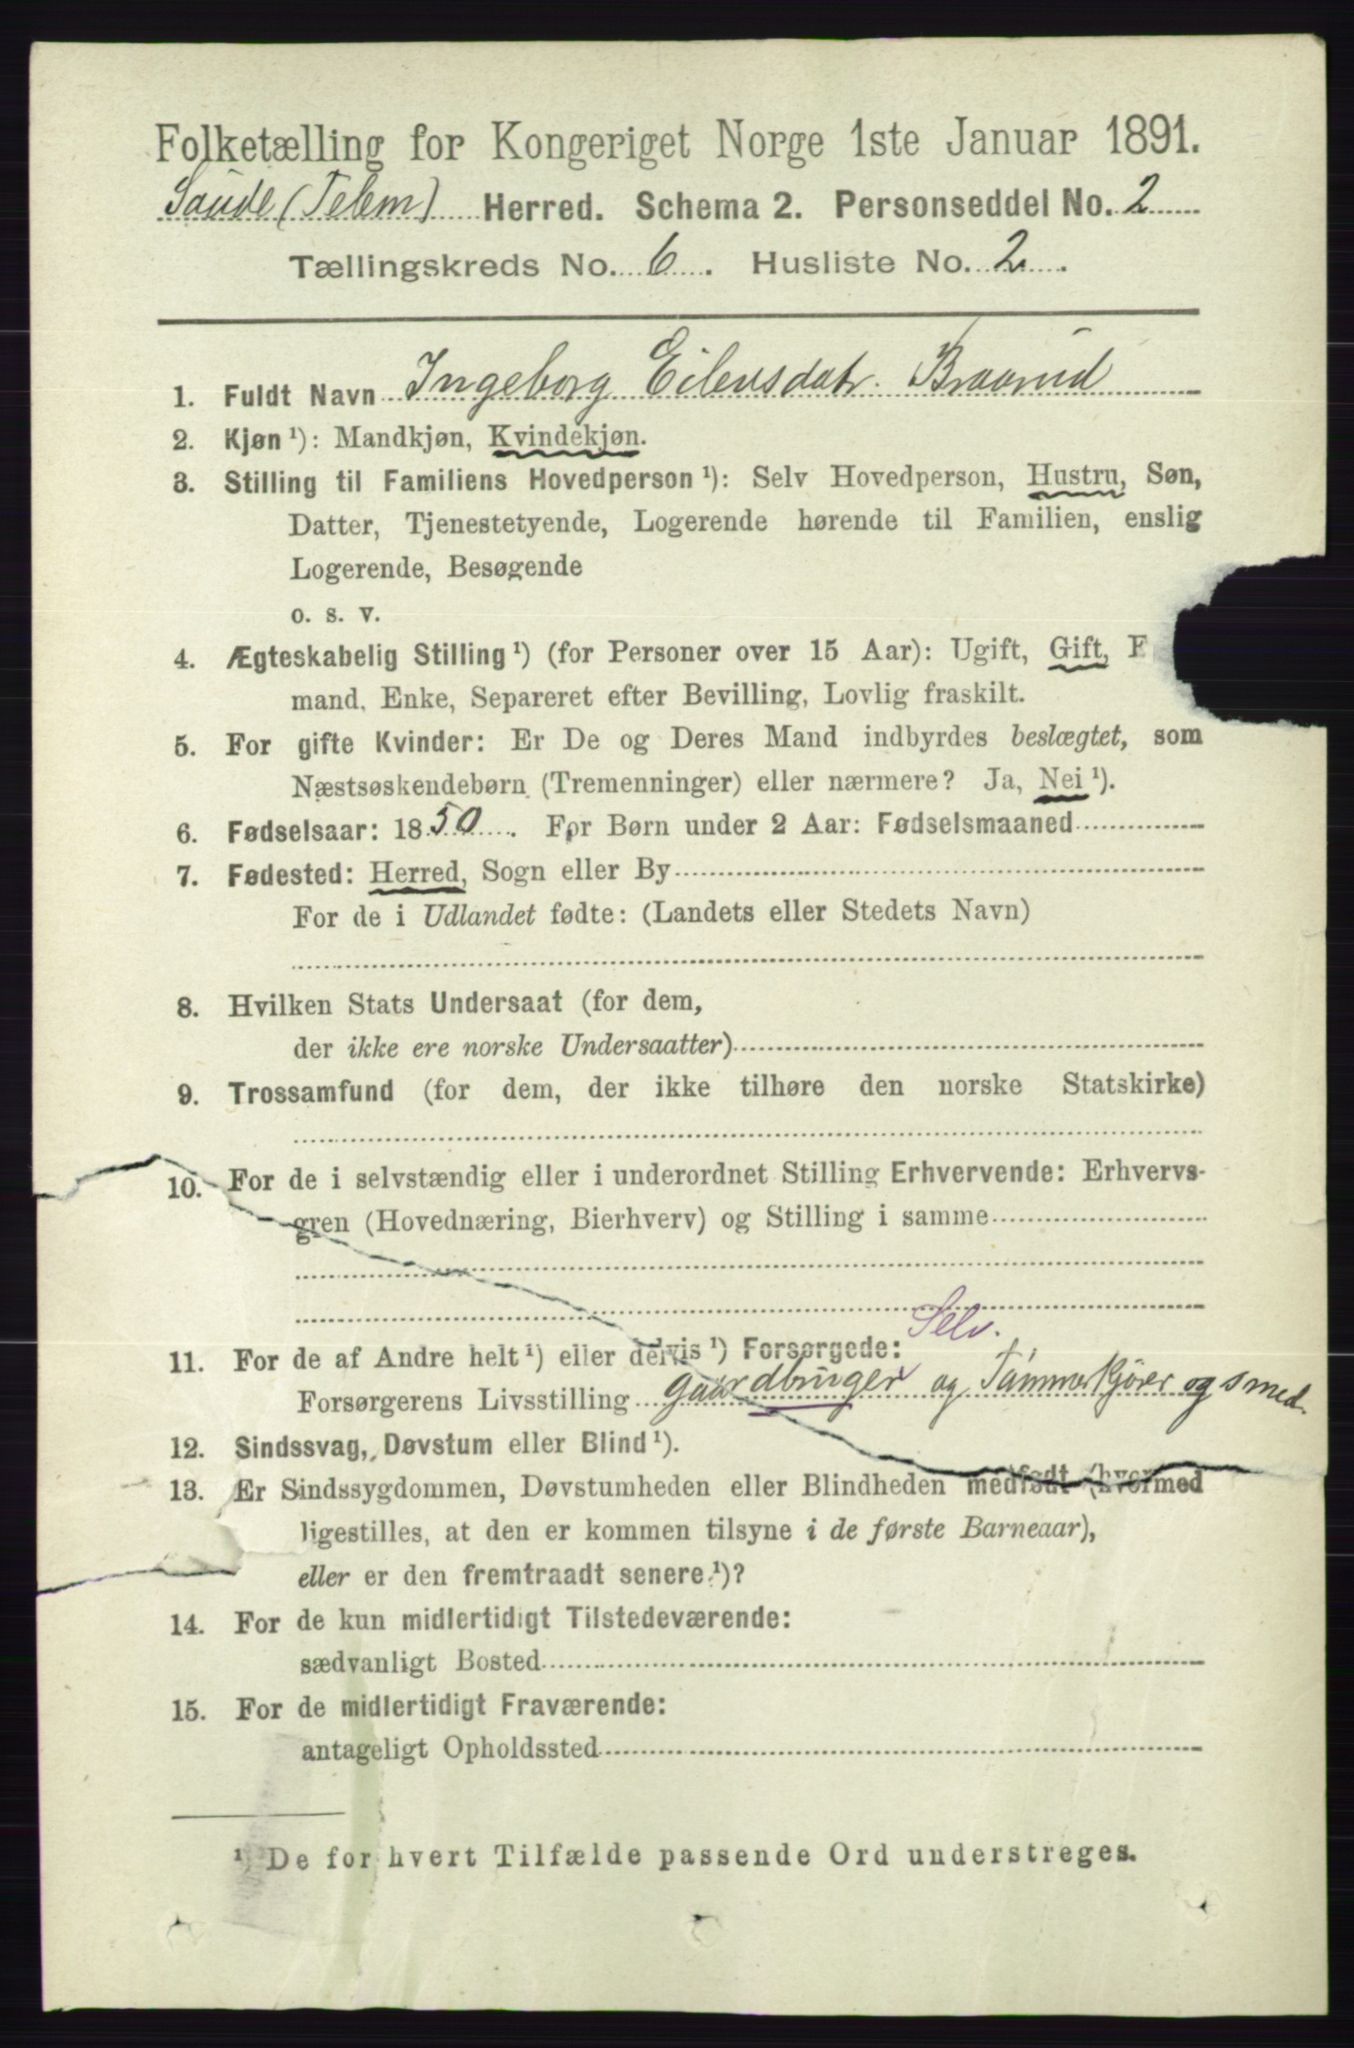 Folketælling for Kongeriget Norge 1ste Januar 1891.
Saude (Telem) Herred. Schema 2. Personseddel No. 2
Tællingskreds No. 6. Husliste No. 2.
1. Fuldt Navn Ingeborg Eilevsdatr. Braarud
2. Kjøn ¹): Mandkjøn, Kvindekjøn.
3. Stilling til Familiens Hovedperson ¹): Selv Hovedperson, Hustru, Søn,
Datter, Tjenestetyende, Logerende hørende til Familien, enslig
Logerende, Besøgende
o. s. v.
4. Ægteskabelig Stilling ¹) (for Personer over 15 Aar): Ugift, Gift, E
mand, Enke, Separeret efter Bevilling, Lovlig fraskilt.
5. For gifte Kvinder: Er De og Deres Mand indbyrdes beslægtet, som
Næstsøskendebørn (Tremenninger) eller nærmere? Ja, Nei ¹).
6. Fødselsaar: 1850. For Børn under 2 Aar: Fødselsmaaned
7. Fødested: Herred, Sogn eller By
For de i Udlandet fødte: (Landets eller Stedets Navn)
8. Hvilken Stats Undersaat (for dem,
der ikke ere norske Undersaatter)
9. Trossamfund (for dem, der ikke tilhøre den norske Statskirke)
10. For de i selvstændig eller i underordnet Stilling Erhvervende: Erhvervs-
gren (Hovednæring, Bierhverv) og Stilling i samme
Selv.
11. For de af Andre helt ¹) eller delvis ¹) Forsørgede:
Forsørgerens Livsstilling gaardbruger og Tømmerkjører og smed.
12. Sindssvag, Døvstum eller Blind ¹).
13. Er Sindssygdommen, Døvstumheden eller Blindheden medfødt (hvormed
ligestilles, at den er kommen tilsyne i de første Barneaar),
eller er den fremtraadt senere ¹)?
14. For de kun midlertidigt Tilstedeværende:
sædvanligt Bosted
15. For de midlertidigt Fraværende:
antageligt Opholdssted
¹) De for hvert Tilfælde passende Ord understreges.